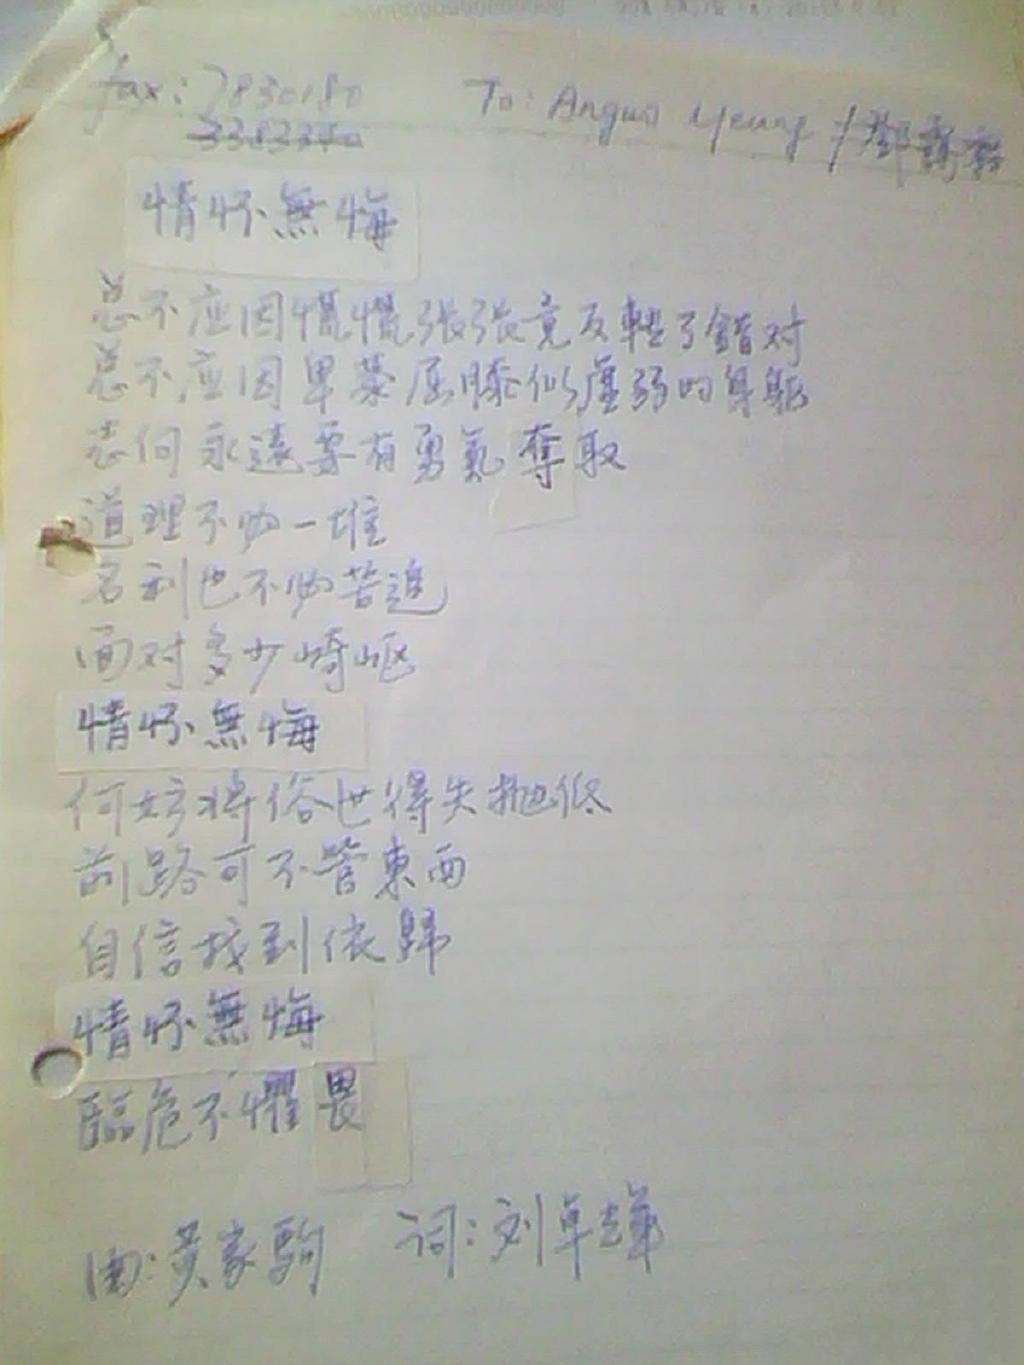 fax: 7830180 To: Angus Yeung / 鄧
3382380
情怀無悔
总不应因慌慌张张竟反轉了錯对
总不应因卑恭屈膝似虛弱的身軀
為何永遠要有勇氣奪取
道理不必一堆
名利也不必苦追
面对多少崎岖
情怀無悔
何妨将俗世得失拋低
前路可不管東西
自信找到依歸
情怀無悔
臨危不懼畏
曲:黃家駒 词:刘卓輝